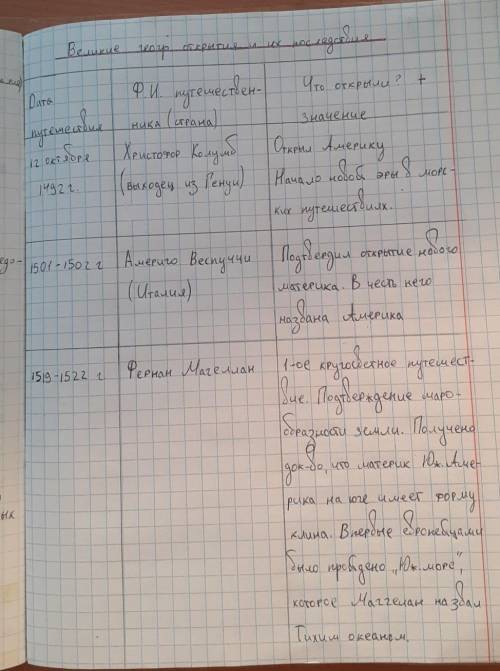 Великие геогр. открытия и их последствия
Дата
путешествия
Ф.И. путешествен-
ника (страна)
Что открыли? +
значение
12 октября
1492 г.
Христофор Колумб
(выходец из Генуи)
Открыл Америку
Начало новой эры в морс-
ких путешествиях.
1501-1502 г
Америго Веспуччи
(Италия)
Подтвердил открытие нового
материка. В честь него
названа Америка
1519-1522 г
Фернан Магеллан
1-ое кругосветное путешест-
вие. Подтверждение шаро-
образности земли. Получено
док-во, что материк Юж. Аме-
рика на юге имеет форму
клина. Впервые европейцами
было пройдено „Юж. море",
которое Маггелан назвал
Тихим океаном.
едо-
ых